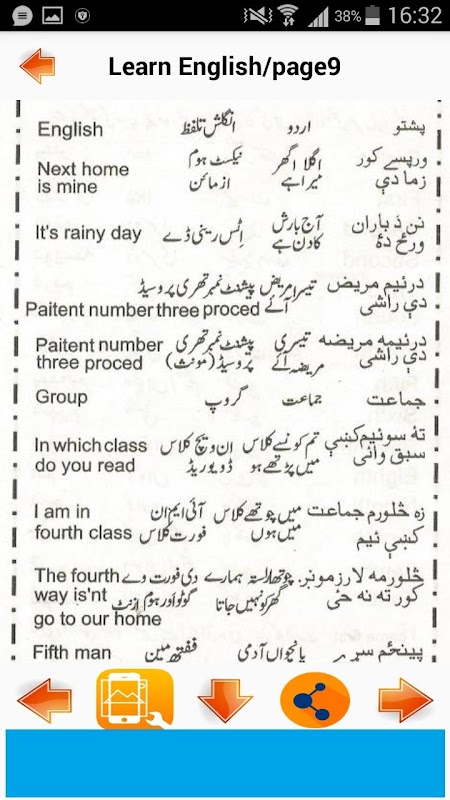 38% 16:32
Learn English/page9
English انگلش تلفظ اردو پشتو
Next home نیکسٹ ہوم اگلا گھر ورپسے کور
is mine از مائن میرا ہے زما دې
It's rainy day اِٹس رینی ڈے آج بارش نن دَ باران
کا دن ہے ورځ دۀ
پیشنٹ نمبر تھری پروسیڈ تیسرا مریض درنیم مریض
Paitent number three proced آئے دې راشي
Paitent number پیشنٹ نمبر تھری تیسری درنیمه مریضه
three proced پروسیڈ (مونث) مریضہ آئے دې راشي
Group گروپ جماعت جماعت
In which class ان ویچ کلاس تم کونسے کلاس ته سوئیم کښې
do you read ڈو یو ریڈ میں پڑھتے ہو سبق وائي
I am in آئی ایم ان میں چوتھے کلاس زه څلورم جماعت
fourth class فورتھ کلاس میں ہوں کښې ئیم
The fourth دی فورت وے چوتھا راستہ ہمارے څلورمه لار زمونږ
way is'nt گو ٹو اور ہوم ازنٹ گھر کو نہیں جاتا کور ته نه ځي
go to our home
Fifth man ففتھ مین پانچواں آدمی پینځم سړے